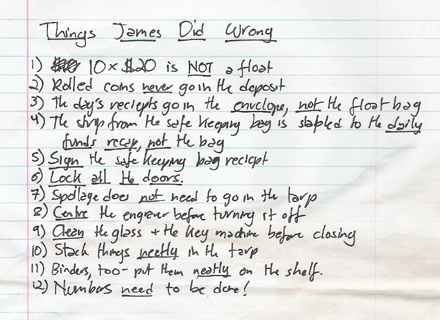 Things James Did Wrong
1) 10 x $20 is NOT a float
2) Rolled coins never go in the deposit
3) The day's reciepts go in the envelope, not the float bag
4) The strip from the safe keeping bag is stapled to the daily
funds recap, not the bag
5) Sign the safe keeping bag reciept
6) Lock all the doors.
7) Spoilage does not need to go in the tarp
8) Centre the engraver before turning it off
9) Clean the glass + the key machine before closing
10) Stack things neetly in the tarp
11) Binders, too - put them neatly on the shelf.
12) Numbers need to be done!